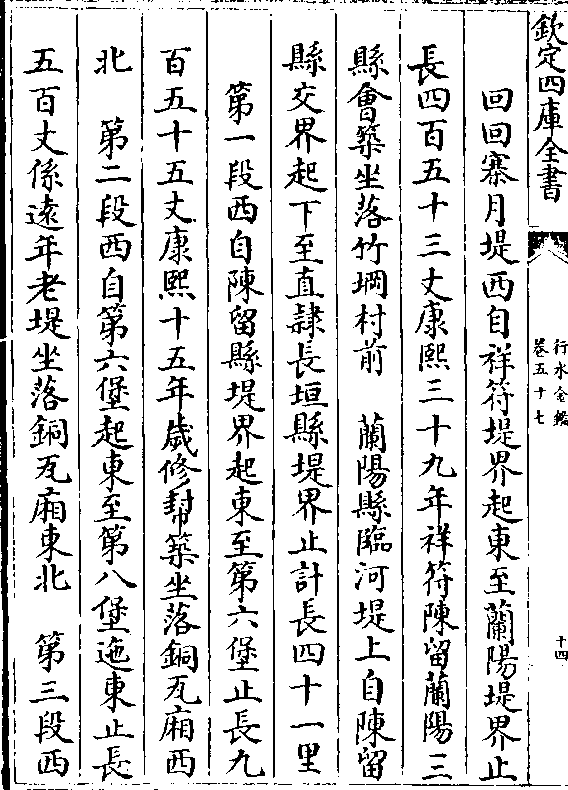 欽定四庫全書
行水金鑑
卷五十七
十四
回回寨月堤西自祥符堤界起東至蘭陽堤界止
長四百五十三丈康熙三十九年祥符陳留蘭陽三
縣會築坐落竹堈村前　蘭陽縣臨河堤上自陳留
縣交界起下至直隸長垣縣堤界止計長四十一里
第一段西自陳留縣堤界起東至第六堡止長九
百五十五丈康熙十五年歲修幇築坐落銅瓦廂西
北　第二段西自第六堡起東至第八堡迤東止長
五百丈係遠年老堤坐落銅瓦廂東北　第三段西